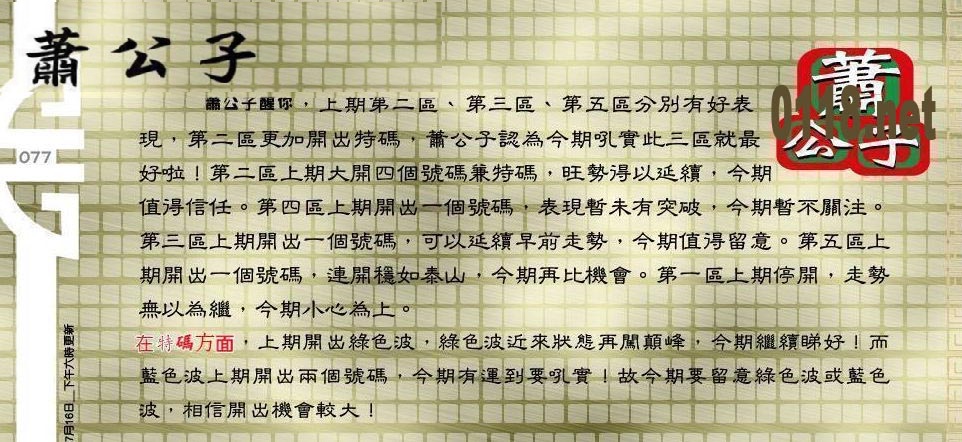 蕭公子
蕭公子醒你，上期第二區、第三區、第五區分別有好表
現，第二區更加開出特碼，蕭公子認為今期吼實此三區就最
好啦！第二區上期大開四個號碼兼特碼，旺勢得以延續，今期
值得信任。第四區上期開出一個號碼，表現暫未有突破，今期暫不關注。
第三區上期開出一個號碼，可以延續早前走勢，今期值得留意。第五區上
期開出一個號碼，連開穩如泰山，今期再比機會。第一區上期停開，走勢
無以為繼，今期小心為上。
在特碼方面，上期開出綠色波，綠色波近來狀態再闖顛峰，今期繼續睇好！而
藍色波上期開出兩個號碼，今期有運到要吼實！故今期要留意綠色波或藍色
波，相信開出機會較大！
蕭
公子
0118.net
077
7月16日__下午六時更新